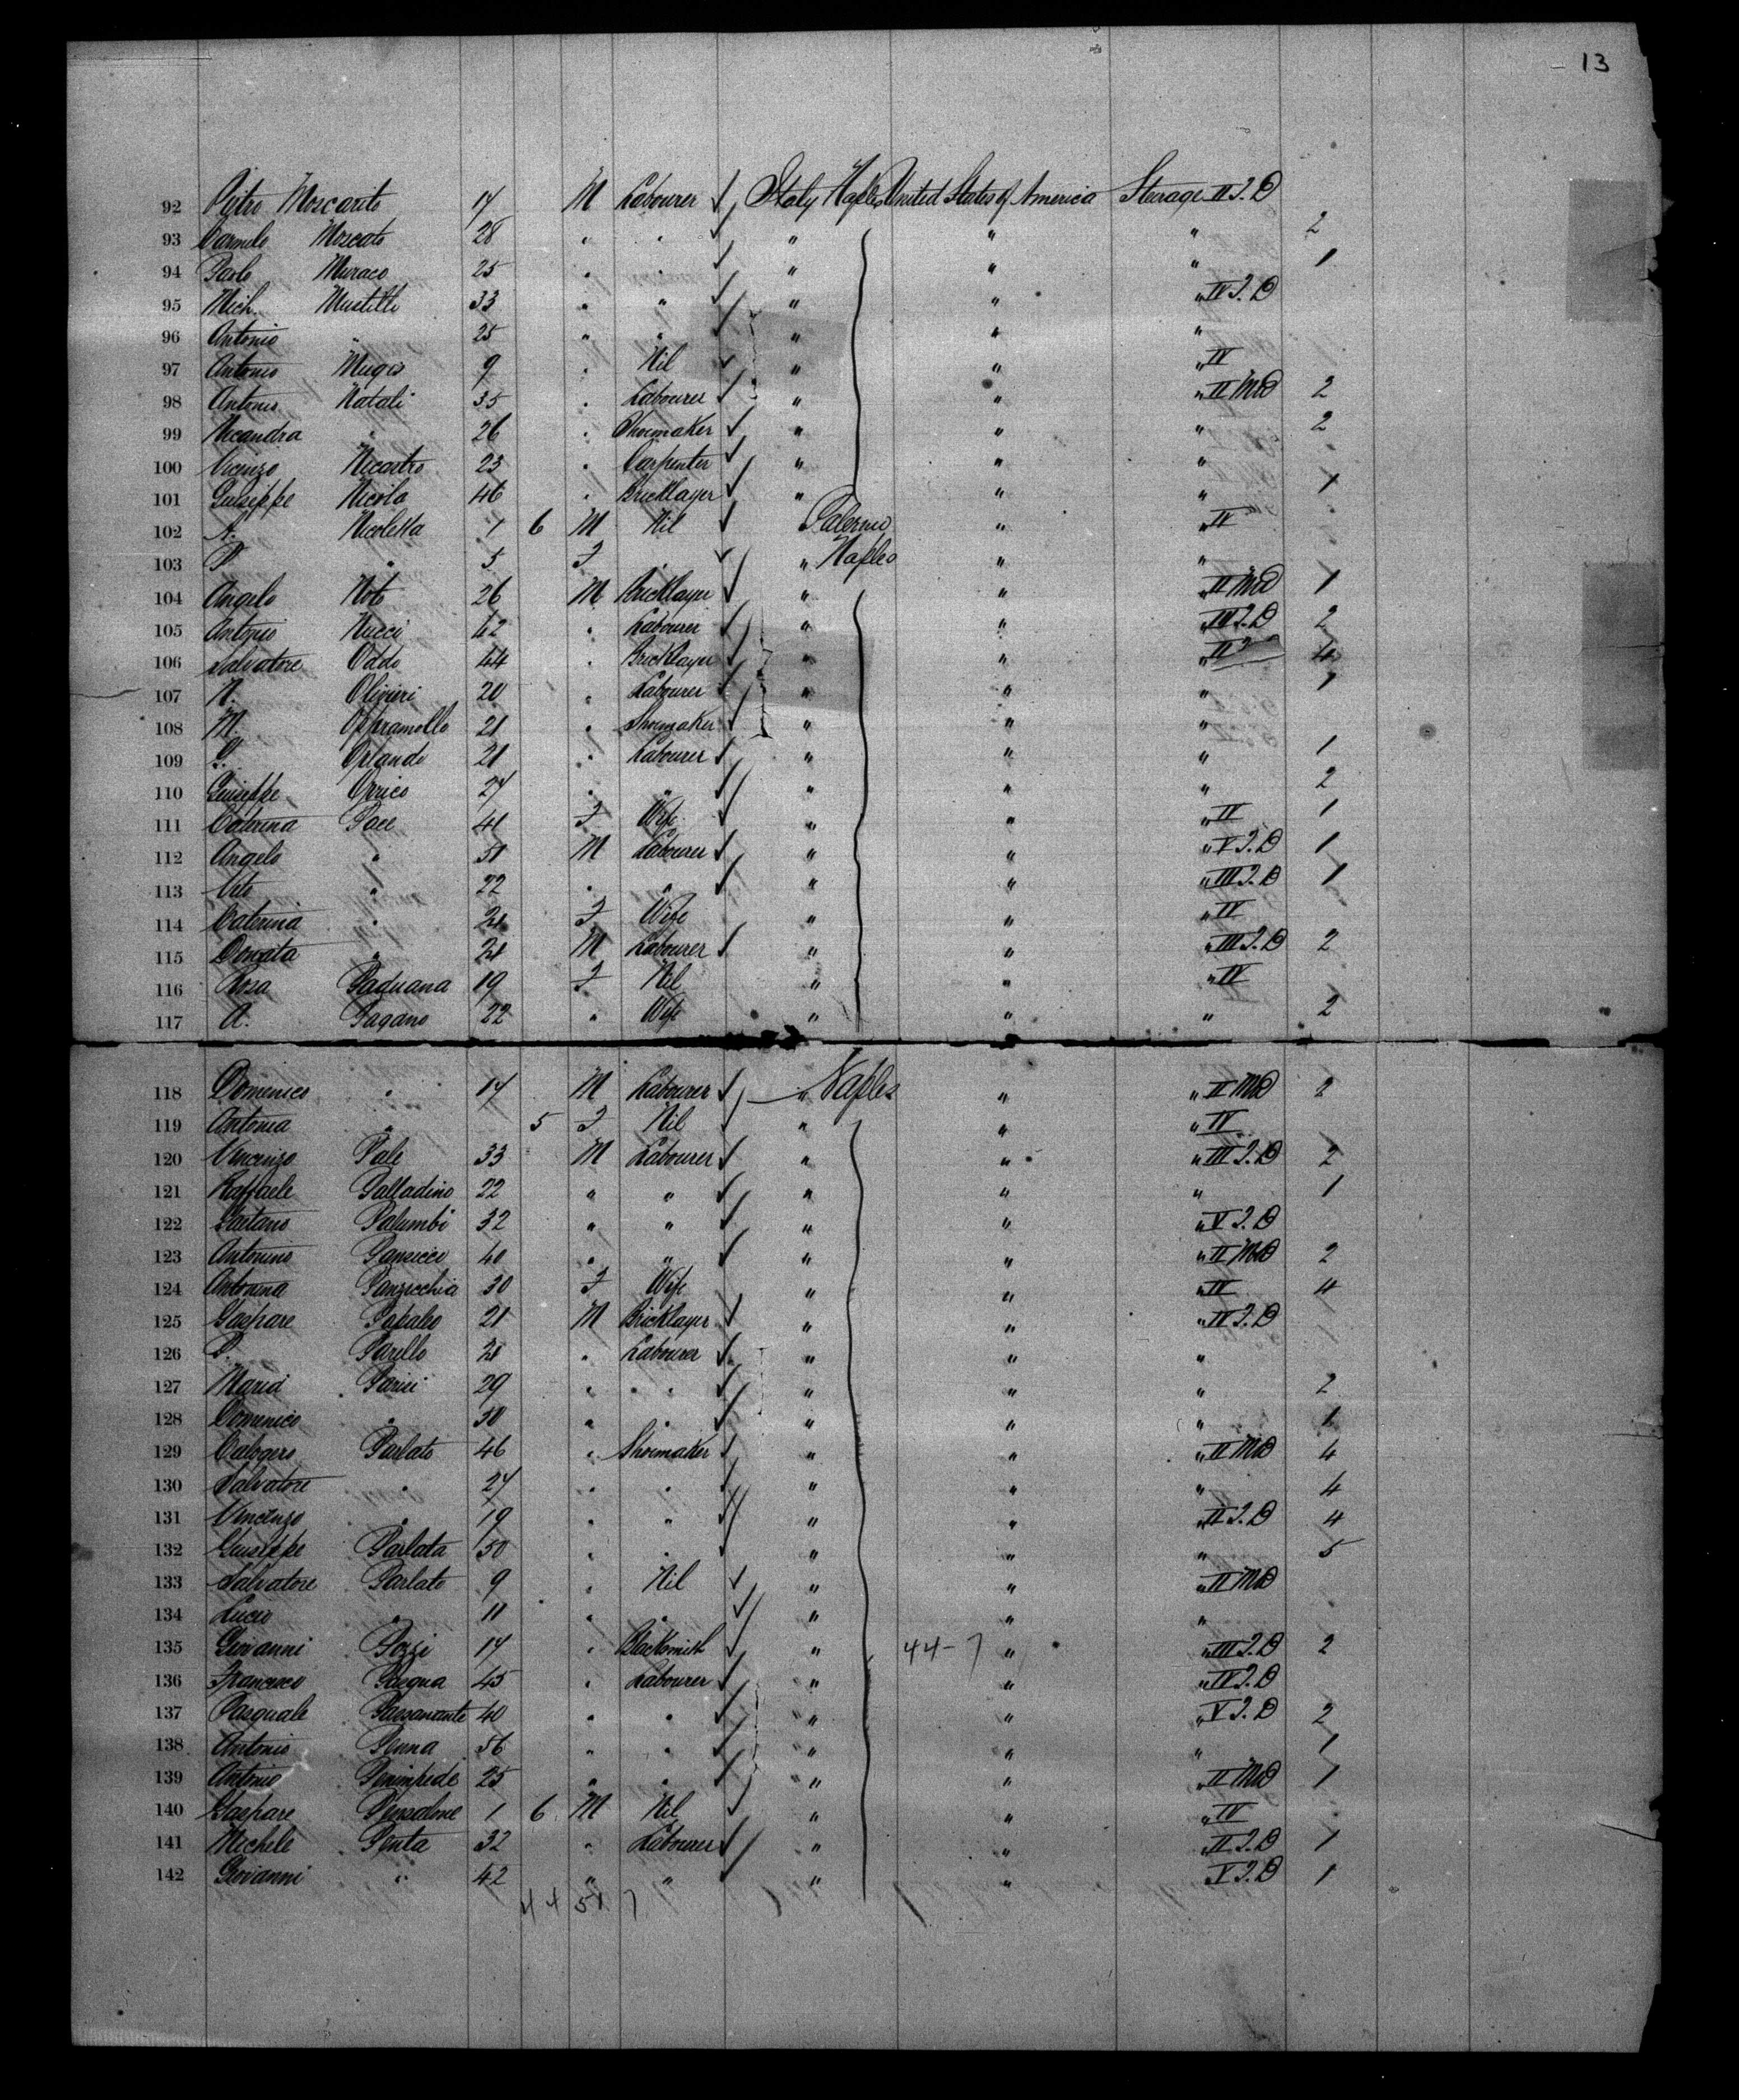 13
92 Pietro Moscarito 17 M Labourer Italy Naples United States of America Steerage II T.D
93 Carmelo Moscato 28 " " " " " 2
94 Paolo Muraco 25 " " " " " 1
95 Mich. Mustilli 33 " " " " " IV T.D
96 Antonio " 25 " " " " "
97 Antonio 9 " Nil " " " IV
98 Antonio Natali 35 " Labourer " " " II Mid 2
99 Nicandra " 26 " Shoemaker " " " 2
100 Vicenzo Nicastro 23 " Carpenter " " "
101 Guiseppe Nicola 46 " Bricklayer " " " 1
102 A. Nicoletta 1 6 M Nil Palermo " " IV
103 P " 5 F " Naples " "
104 Angelo Noto 26 M Bricklayer " " " II Mid 1
105 Antonio Nucci 42 " Labourer " " " III T.D 2
106 Salvatore Oddo 44 " Bricklayer " " " II 4
107 N. Olivieri 20 " Labourer " " " 1
108 M. Oppramollo 21 " Shoemaker " " "
109 G. Orlando 21 " Labourer " " " 1
110 Guiseppe Orrico 27 " " " " " 2
111 Caterina Pace 41 F Wife " " " IV 1
112 Angelo " 51 M Labourer " " " V T.D 1
113 Vito " 22 " " " " " III T.D 1
114 Caterina " 21 F Wife " " " IV
115 Donata " 21 M Labourer " " " III T.D 2
116 Rosa Paduana 19 F Nil " " " IV
117 A. Pagano 22 " Wife " " " 2
118 Domenico " 17 M Labourer " Naples " " II Mid 2
119 Antonia " 5 F Nil " " " IV
120 Vincenzo Pale 33 M Labourer " " " III T.D 2
121 Raffaele Palladino 22 " " " " " 1
122 Gaetano Palumbi 32 " " " " " V T.D
123 Antonino 40 " " " " " II Mid 2
124 Antonina Panzecchia 30 F Wife " " " IV 4
125 Gaspare 21 M Bricklayer " " " IV T.D
126 P. Parello 21 " Labourer " " "
127 Maria Parisi 29 " " " " " 2
128 Domenico " 30 " " " " " 1
129 Calogero Parlato 46 " Shoemaker " " " II Mid 4
130 Salvatore " 27 " " " " " 4
131 Vincenzo " 19 " " " " " II T.D 4
132 Guiseppe Parlata 50 " " " " " 5
133 Salvatore Parlato 9 " Nil " " " II Mid
134 Lucio " 11 " " " " "
135 Giovanni 17 " Blacksmith " 44-7 " " III T.D 2
136 Francesco Pasqua 45 " Labourer " " " IV T.D
137 Pasquale Passanante 40 " " " " " V T.D 2
138 Antonio Penna 56 " " " " " 1
139 Antonio Penimpede 25 " " " " " II Mid 1
140 Gaspare Pensalone 1 6 M Nil " " " IV
141 Michele Penta 32 " Labourer " " " II T.D 1
142 Giovanni " 42 " " " " " V T.D 1
44 51 7